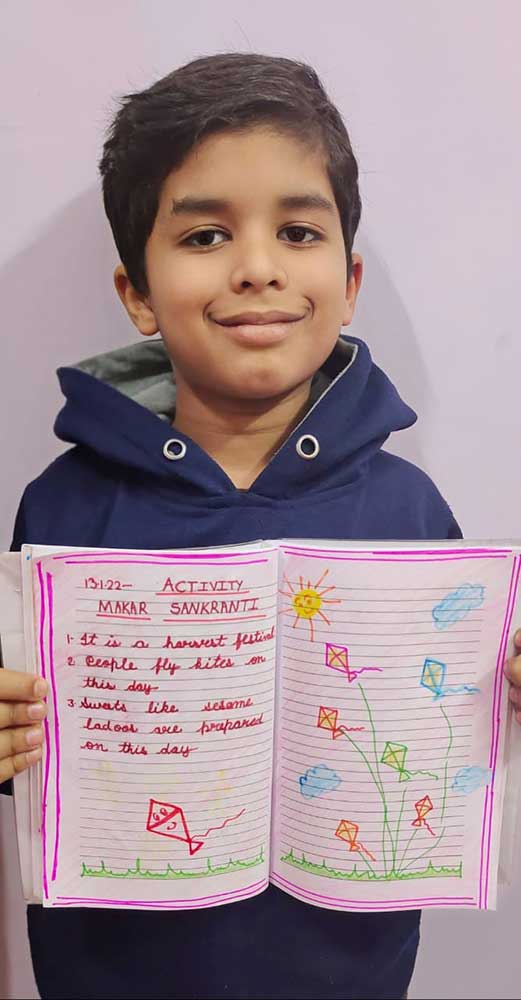 13.1.22- ACTIVITY
MAKAR SANKRANTI
1. It is a harvest festival
2. People fly kites on
this day
3. Sweets like sesame
ladoos are prepared
on this day